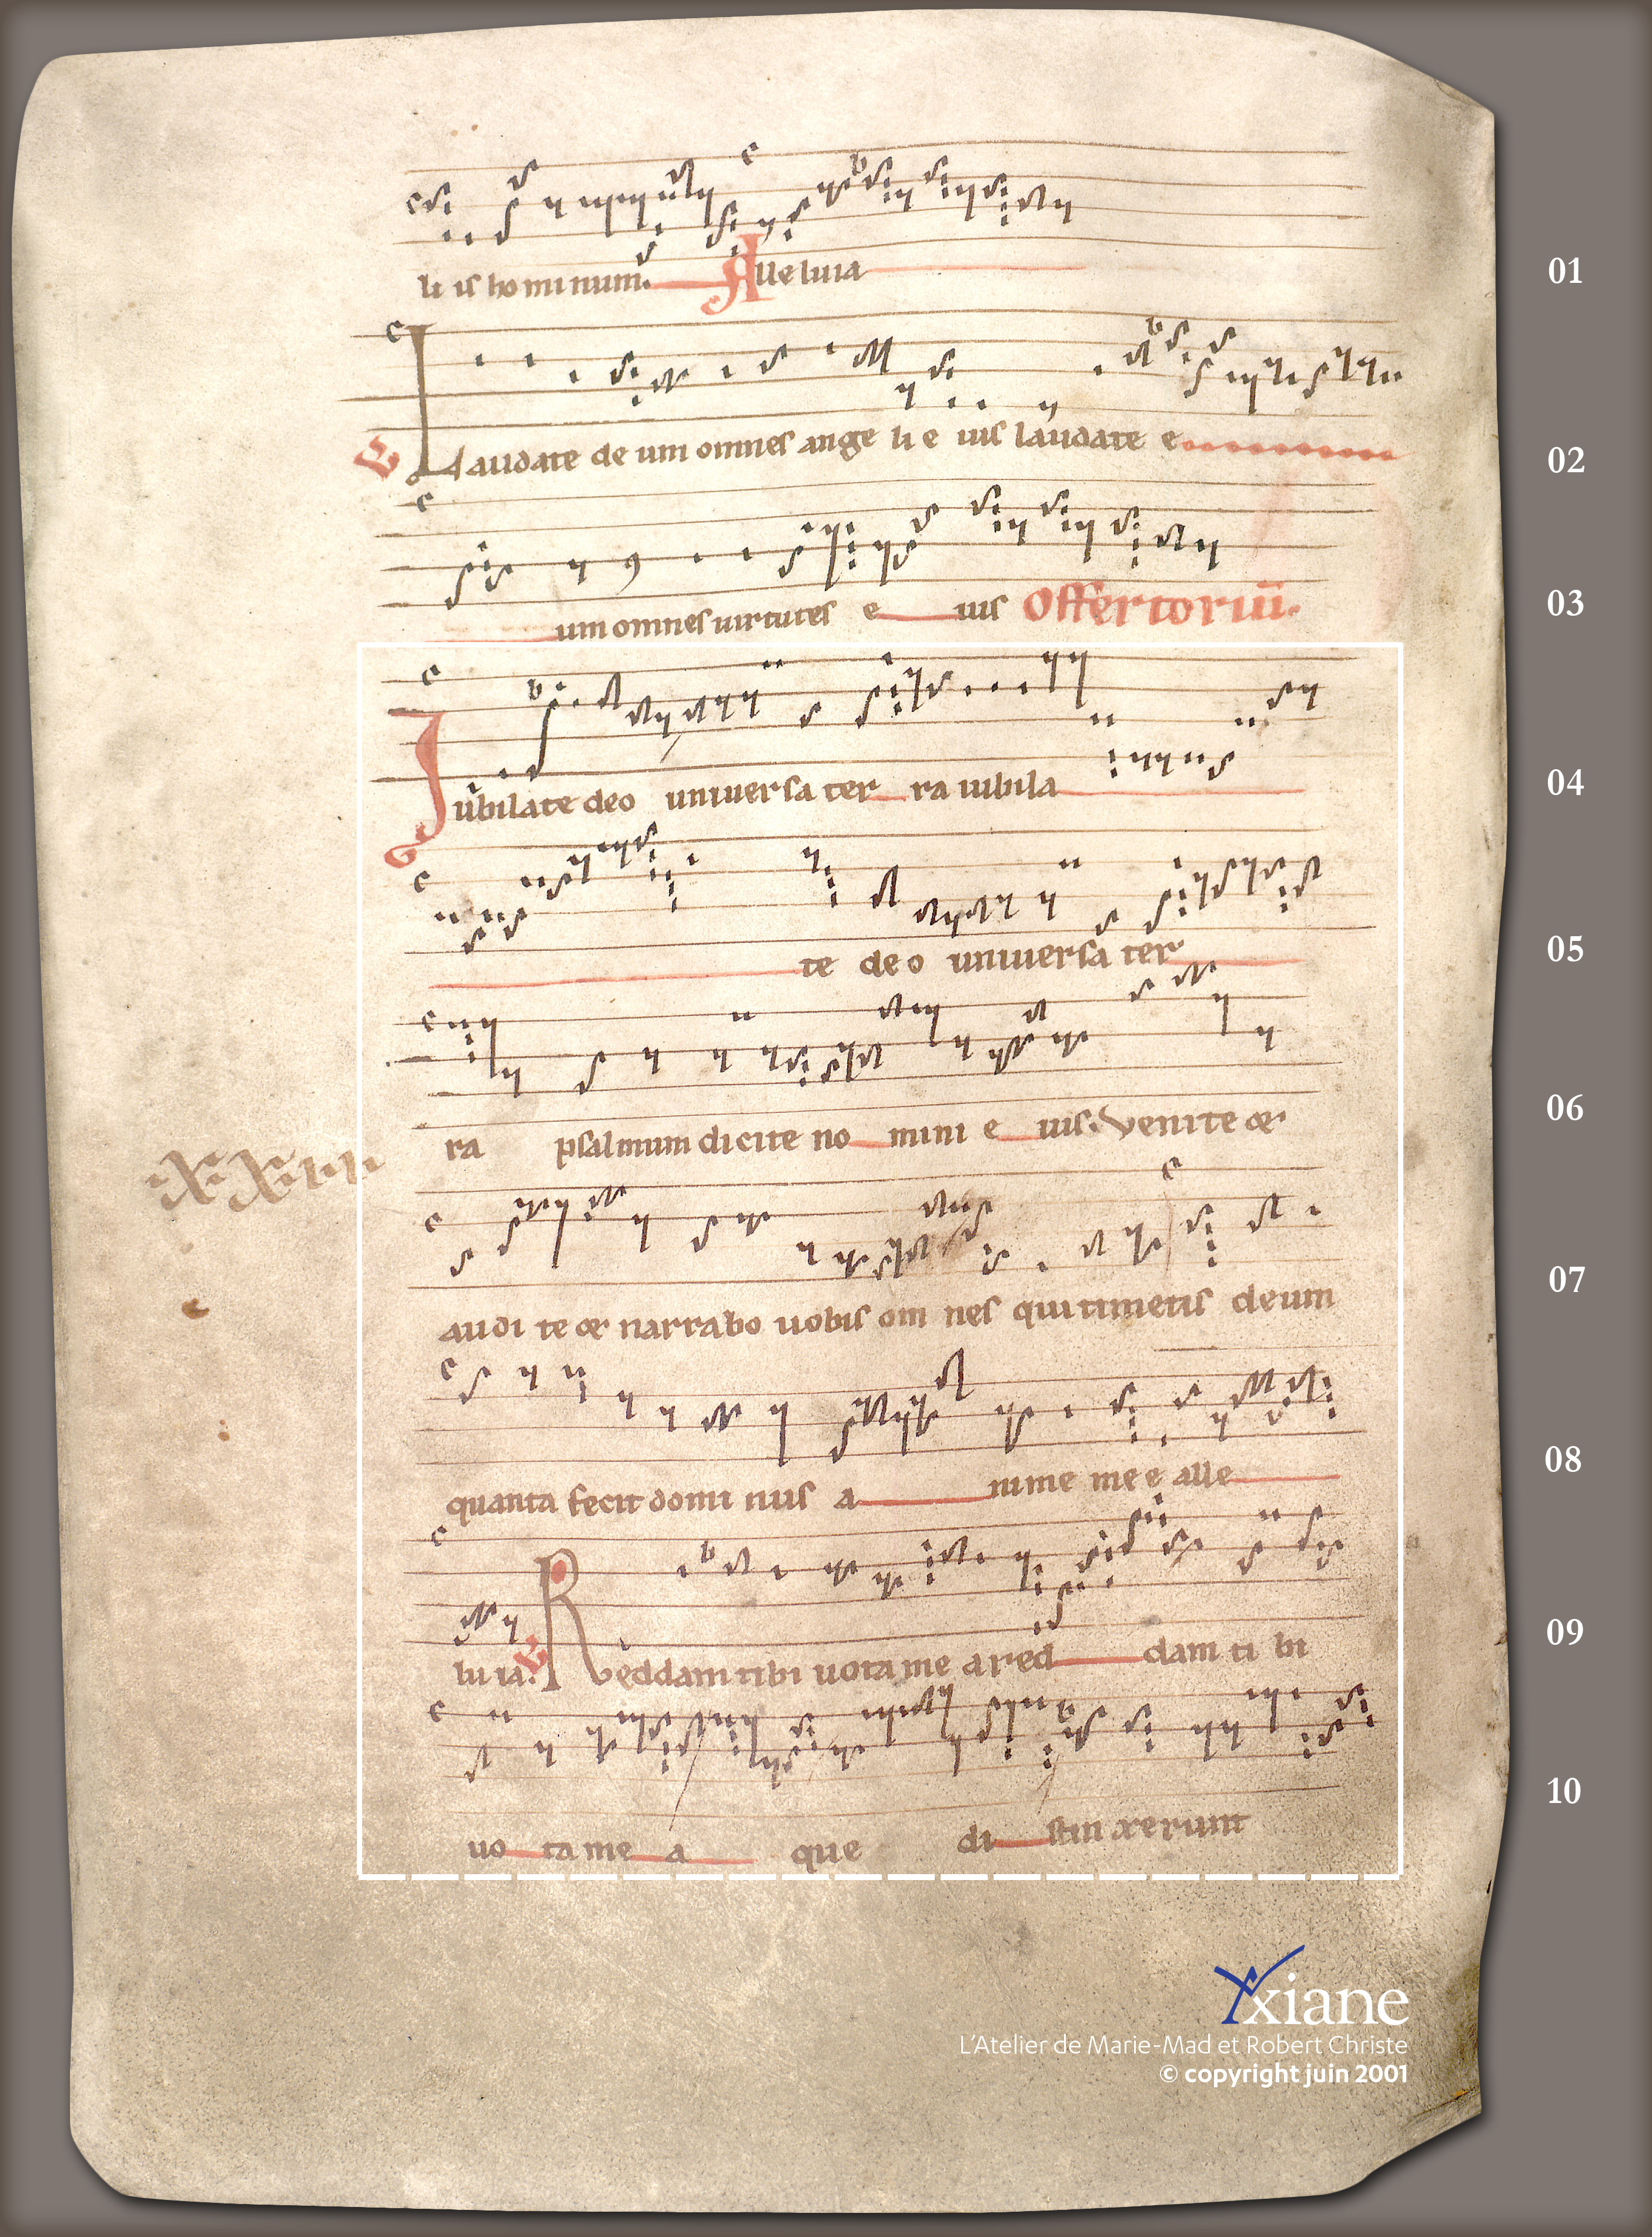 li is ho mi num. Alleluia
01
E Laudate de um omnes ange li e ius laudate e
02
um omnes uirtutes e ius Offertoriū.
03
Iubilate deo uniuersa ter ra iubila
04
te deo uniuersa ter
05
ra psalmum dicite no mini e ius. Venite &
06
audi te & narrabo uobis om nes qui timetis deum
07
quanta fecit domi nus a nime me e alle
08
lu ia. Reddam tibi uota me a red dam ti bi
09
uo ta me a que di stinxerunt
10
Yxiane
L'Atelier de Marie-Mad et Robert Christe
© copyright juin 2001